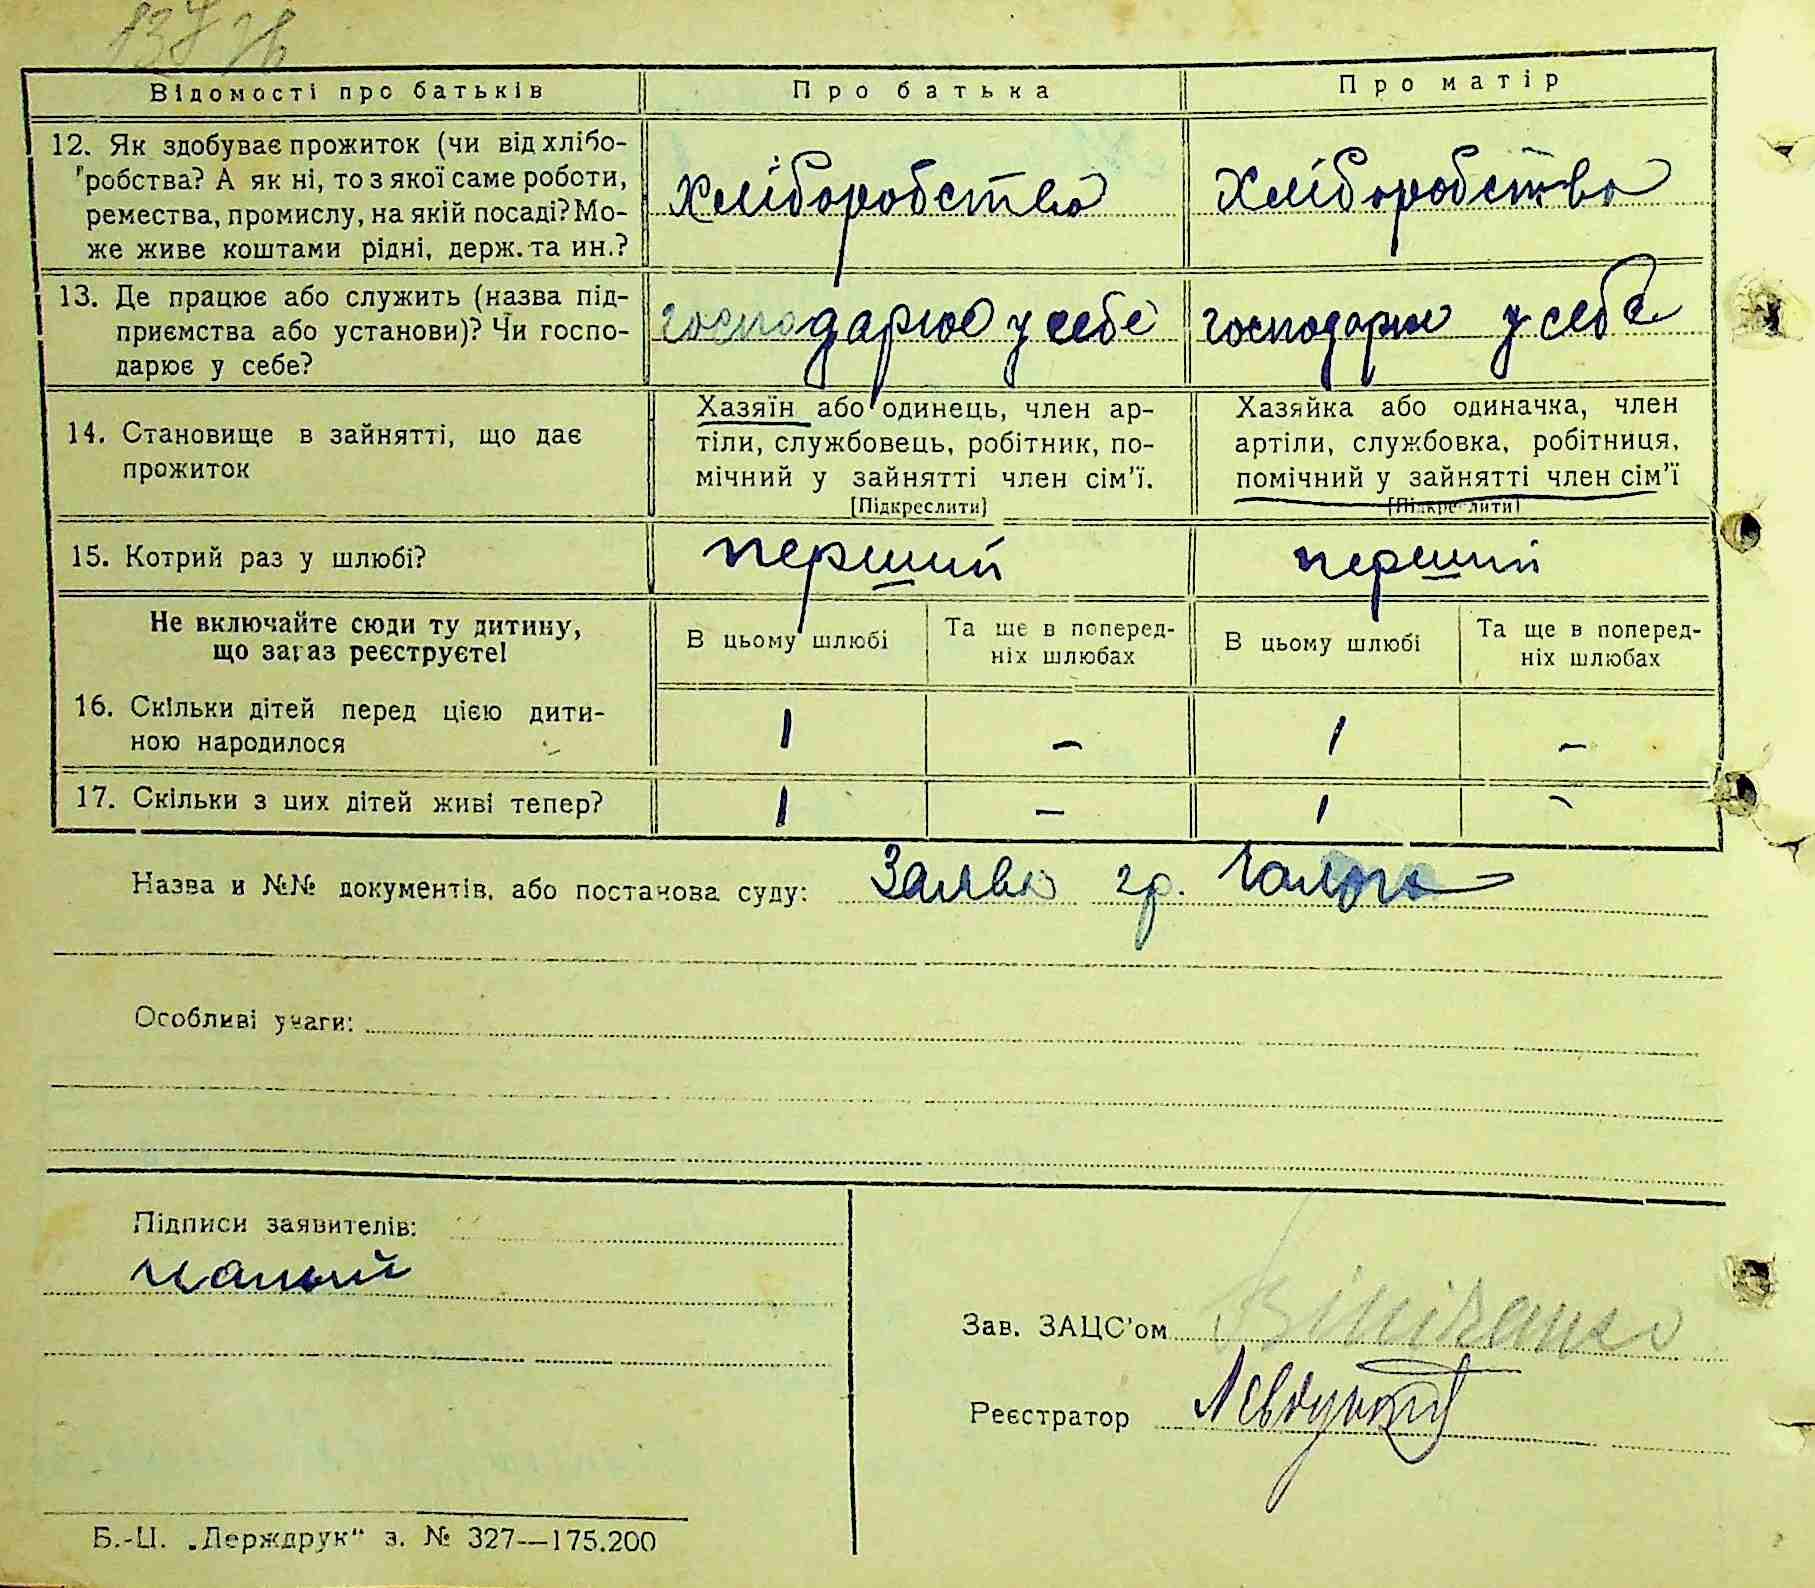 Відомості про батьків
Про батька
Про матір
12. Як здобуває прожиток (чи від хлібо-
робства? А як ні, то з якої саме роботи,
ремества, промислу, на якій посаді? Мо-
же живе коштами рідні, держ. та ин.?
Хліборобство
Хліборобство
13. Де працює або служить (назва під-
приємства або установи)? Чи госпо-
дарює у себе?
господарює у себе
господарює у себе
14. Становище в зайнятті, що дає
прожиток
Хазяїн або одинець, член ар-
тіли, службовець, робітник, по-
мічний у зайнятті член сім'ї.
[Підкреслити]
Хазяйка або одиначка, член
артіли, службовка, робітниця,
помічний у зайнятті член сім'ї
[Підкреслити]
15. Котрий раз у шлюбі?
перший
перший
Не включайте сюди ту дитину,
що зараз реєструєте!
В цьому шлюбі
Та ще в поперед-
ніх шлюбах
В цьому шлюбі
Та ще в поперед-
ніх шлюбах
16. Скільки дітей перед цією дити-
ною народилося
1 – 1 –
17. Скільки з цих дітей живі тепер?
1 – 1 –
Назва и №№ документів, або постанова суду: Заява гр.
Особливі уваги:
Підписи заявителів:
Зав. ЗАЦС'ом
Реєстратор
Б.-Ц. „Держдрук" з. № 327—175.200